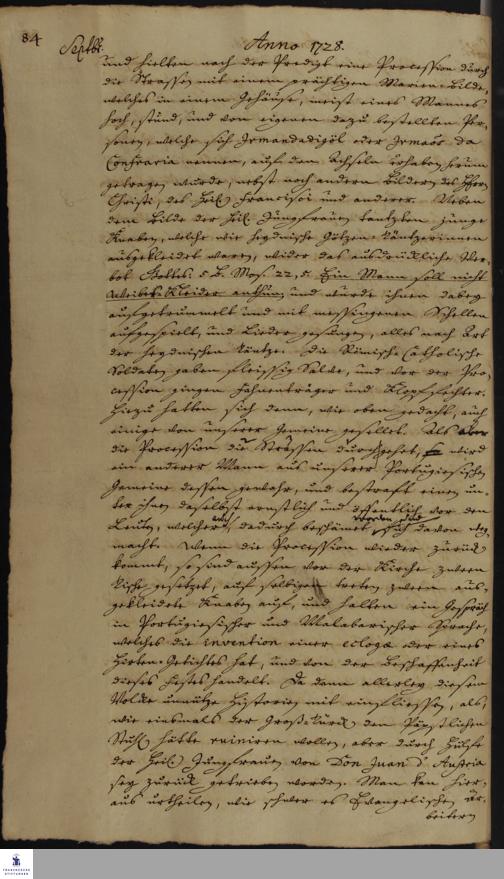 84
Septbr.
Anno 1728.
und hielten nach der Predigt eine Procession durch
die Strassen mit einem prächtigen Marien-Bilde,
welches in einem Gehäuse, meist eines Mannes
hoch, stund, und von eigenen dazu bestellten Per-
sonen, welche sich Irmandadigöl oder Irmaōs da
Confraria nennen, auf den Achseln erhaben herum
getragen wurde, nebst noch andern Bildern des Herrn
Christi, des Heil. Francisci und anderer. Neben
dem Bilde der Heil. Jungfrauen tantzten junge
Knaben, welche wie heydnische Götzen-Täntzerinnen
ausgekleidet waren, wider das ausdrückliche Ver-
bot Gottes. 5 B. Mos. 22, 5. Ein Mann soll nicht
Weibes-Kleider anthun; und wurde ihnen dabey
aufgetrummelt und mit messingenen Schellen
aufgespielt, und Lieder gesungen, alles nach Art
der heydnischen Täntze. Die Römisch-Catholische
Soldaten gaben fleissig Salve, und vor der Pro-
cession gingen Fahnenträger und Klopffechter.
Hiezu hatten sich denn, wie oben gedacht, auch
einige von unserer Gemeine gesellet. Als aber
die Procession die Strassen durchgehet, wird
ein anderer Mann aus unserer Portugiesischen
Gemeine dessen gewahr, und bestraft einen un-
ter ihnen daselbst ernstlich und öffentlich vor den
Leuten, welcher auch dadurch beschämet worden und sich davon
macht. Wenn die Procession wieder zurück
kommt, so sind aussen vor der Kirche zween
Tische gesetzet, auf selbigen treten zween aus-
gekleidete Knaben auf, und halten ein Gespräch
in Portugiesischer und Malabarischer Sprache,
welches die invention einer ecloga oder eines
Hirten-Getichtes hat, und von der Beschaffenheit
dieses Festes handelt. Da dann allerley diesem
Volke unnütze Historien mit einfliessen, als,
wie einsmals der Groß-Türck den Päpstlichen
Stuhl hätte ruiniren wollen, aber durch Hülfe
der Heil. Jungfrauen von Don Juan d' Austria
sey zurück getrieben worden. Man kan hier-
aus urtheilen, wie schwer es Evangelischen Ar-
beitern
FRANCKESCHE
STIFTUNGEN